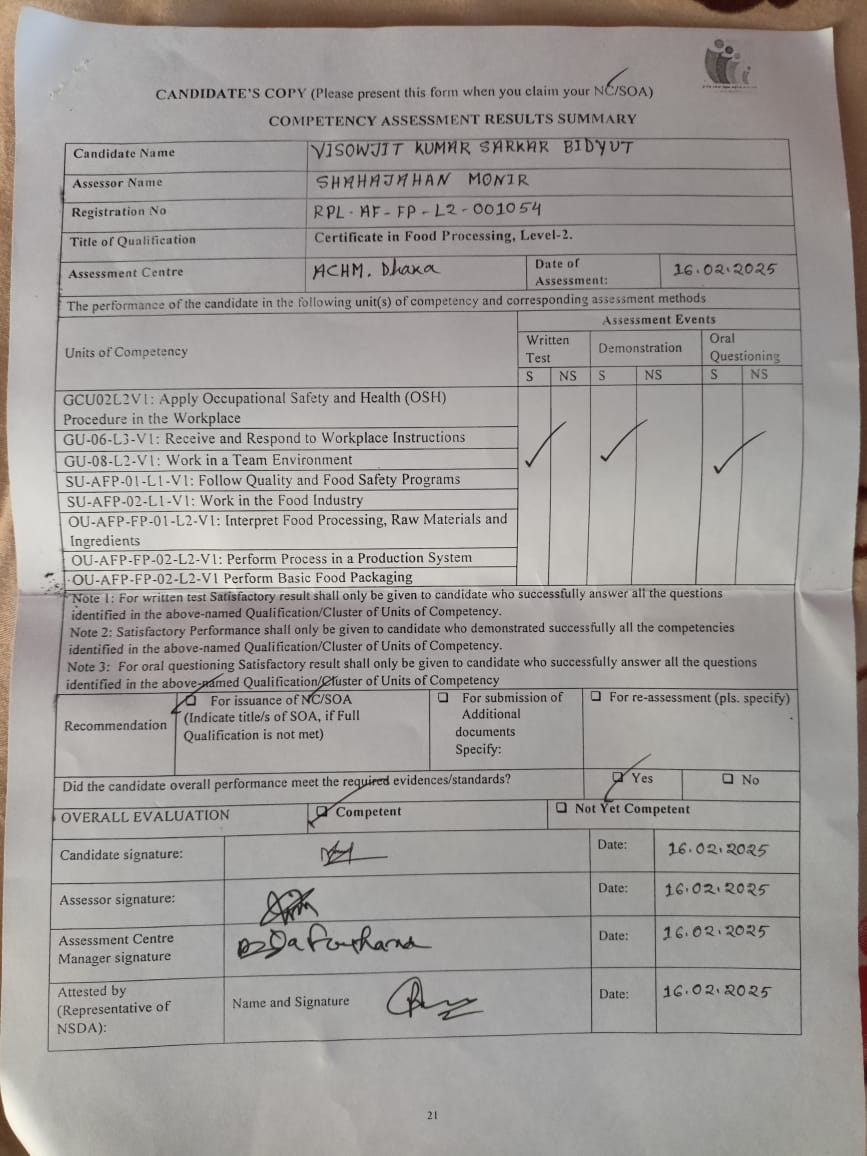 CANDIDATE'S COPY (Please present this form when you claim your NC/SOA)
COMPETENCY ASSESSMENT RESULTS SUMMARY
Candidate Name VISOWJIT KUMAR SARKAR BIDYUT
Assessor Name SHAHAJAHAN MONIR
Registration No RPL-AF-FP-L2-001054
Title of Qualification Certificate in Food Processing, Level-2.
Assessment Centre ACHM. Dhaka Date of Assessment: 16.02.2025
The performance of the candidate in the following unit(s) of competency and corresponding assessment methods
Units of Competency
Assessment Events
Written Test Demonstration Oral Questioning
S NS S NS S NS
GCU02L2V1: Apply Occupational Safety and Health (OSH)
Procedure in the Workplace
GU-06-L3-V1: Receive and Respond to Workplace Instructions
GU-08-L2-V1: Work in a Team Environment
SU-AFP-01-L1-V1: Follow Quality and Food Safety Programs
SU-AFP-02-L1-V1: Work in the Food Industry
OU-AFP-FP-01-L2-V1: Interpret Food Processing, Raw Materials and
Ingredients
OU-AFP-FP-02-L2-V1: Perform Process in a Production System
OU-AFP-FP-02-L2-V1 Perform Basic Food Packaging
Note 1: For written test Satisfactory result shall only be given to candidate who successfully answer all the questions
identified in the above-named Qualification/Cluster of Units of Competency.
Note 2: Satisfactory Performance shall only be given to candidate who demonstrated successfully all the competencies
identified in the above-named Qualification/Cluster of Units of Competency.
Note 3: For oral questioning Satisfactory result shall only be given to candidate who successfully answer all the questions
identified in the above-named Qualification/Cluster of Units of Competency
Recommendation
For issuance of NC/SOA
(Indicate title/s of SOA, if Full
Qualification is not met)
For submission of
Additional
documents
Specify:
For re-assessment (pls. specify)
Did the candidate overall performance meet the required evidences/standards? Yes No
OVERALL EVALUATION Competent Not Yet Competent
Candidate signature: Date: 16.02.2025
Assessor signature: Date: 16.02.2025
Assessment Centre
Manager signature Date: 16.02.2025
Attested by
(Representative of
NSDA):
Name and Signature Date: 16.02.2025
21